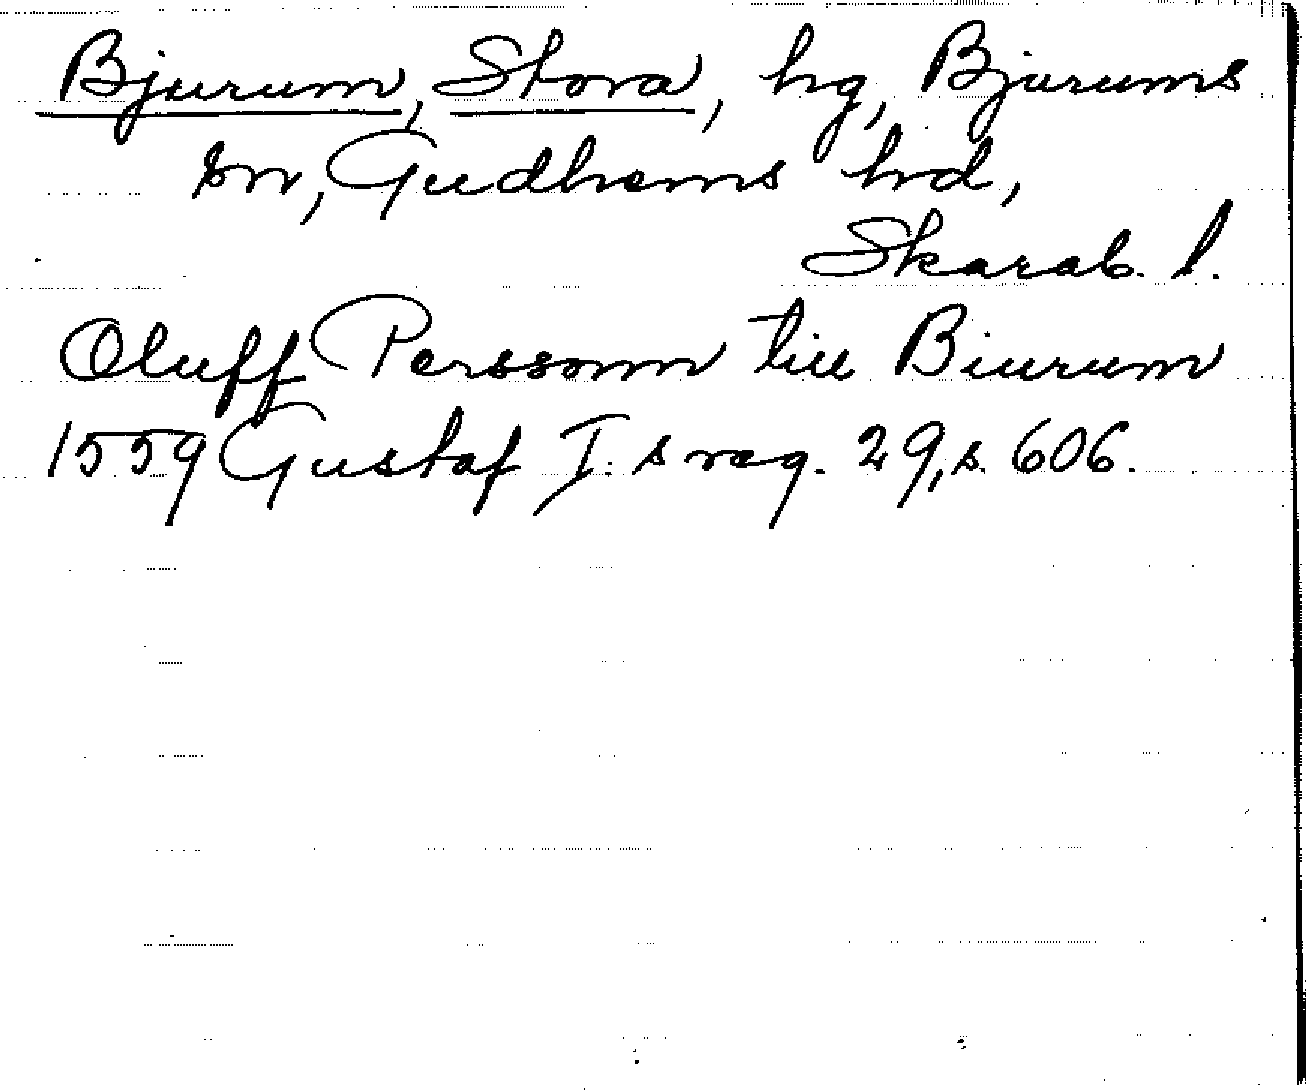 Bjurum, Stora, hg, Bjurums
sn, Gudhems hrd,
Skarab. l.
Oluff Perssonn till Biurum
1559 Gustaf I. s reg. 29, s. 606.